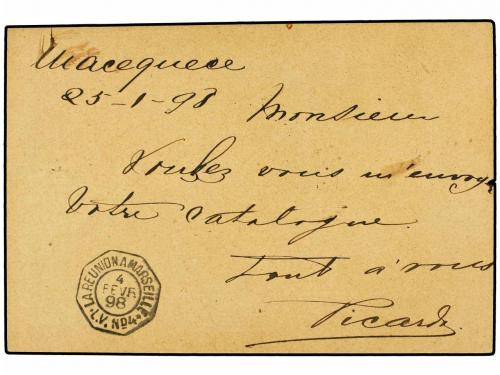 Macequece
25-1-98 Monsieur
Voulez vous m'envoyer
Votre catalogue.
Tout à vous
Picard
LA REUNION A MARSEILLE
4
FEVR
98
L.V. Nº4